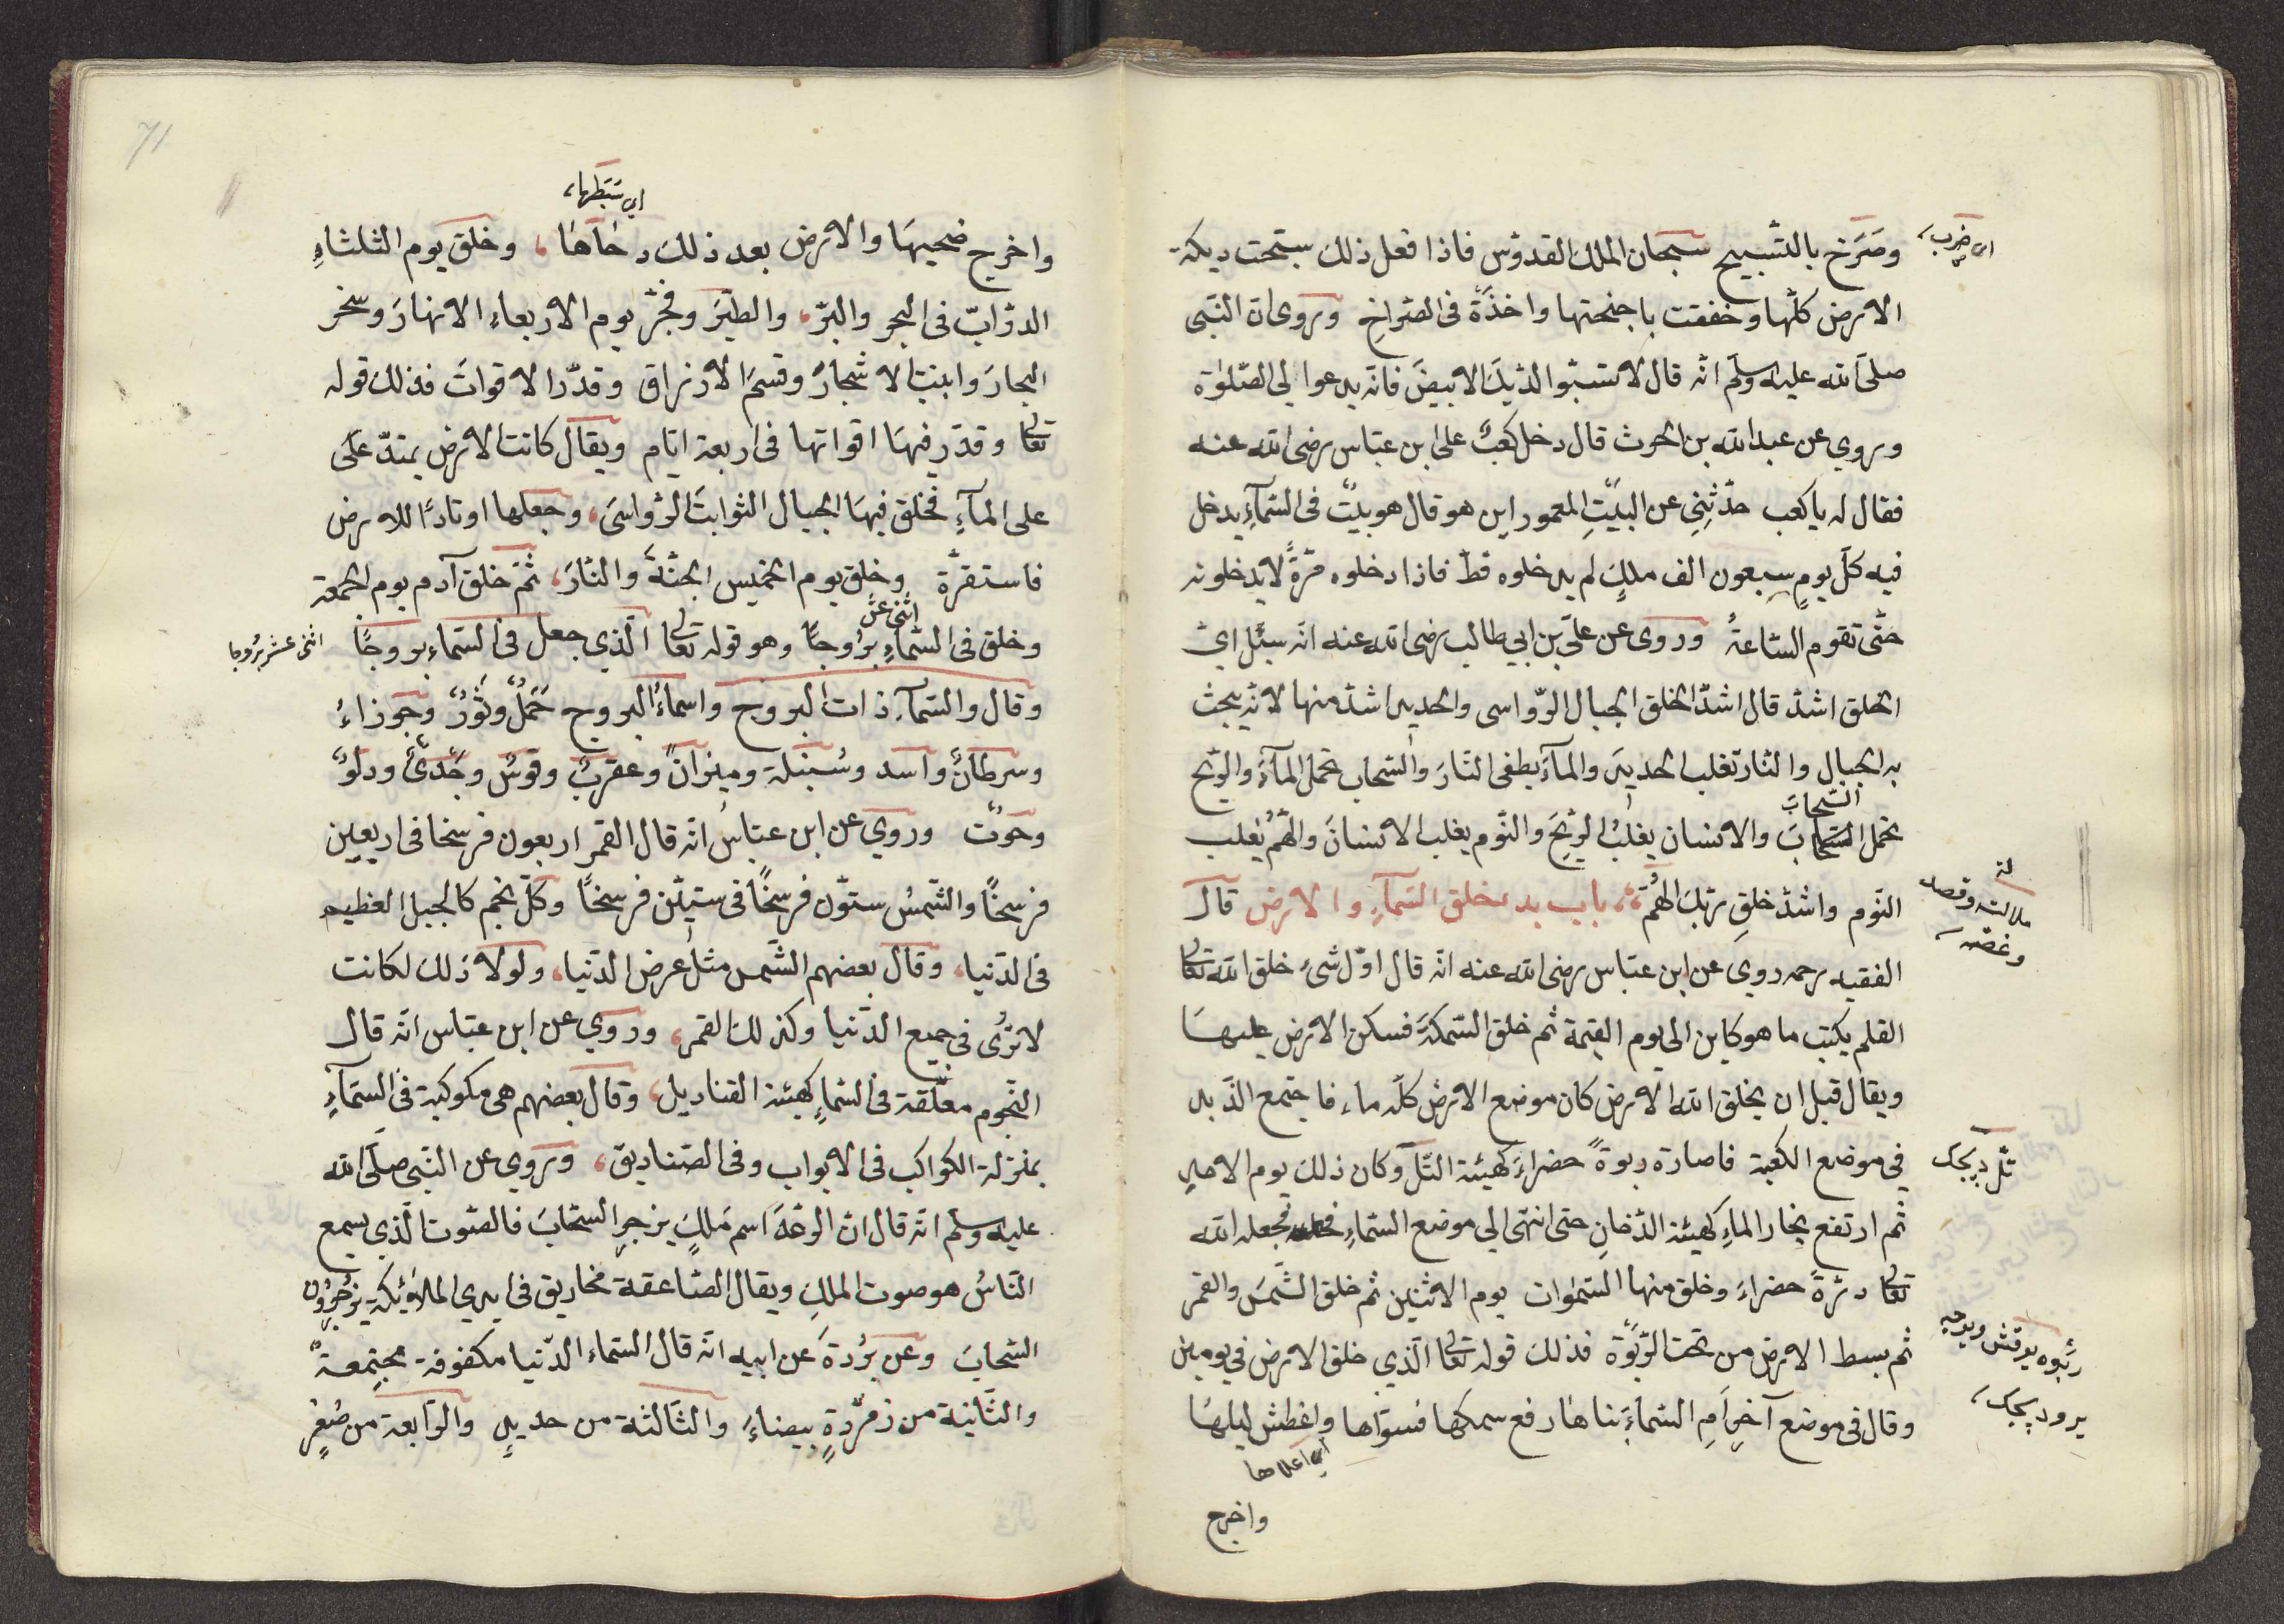 اى ضرب
وصَرَخ بالتّسبيح سبحان الملك القدوس فاذا فعل ذلك سبّحت ديكة
الارض كلّها وخفقت باجنحتها واخذَةً فى الصّراخِ وروى انّ النّبى
صلى الله عليه وسلم انّه قال لا تسبّوا الدّيك الابيضَ فانّه يدعوا لى الصّلوة
وروي عن عبد الله بن الحرث قال دخل كعبٌ على ابن عبّاس رضى الله عنه
فقال له يا كعب حدّثنِى عن البَيْتِ المعمور اين هو قال هو بيتٌ فى السّمآءِ يدخل
فيه كلّ يومٍ سبعون الف ملكٍ لم يدخلوه قطّ فاذا دخلوه مرّةً لا يدخلونه
حتّى تقوم السّاعةُ وروى عن علىّ بن ابي طالب رضى الله عنه انّه سئل اىّ
الخلق اشدّ قال اشدّ الخلق الجبال الرّواسى والحديد اشدّ منها لانّه ينحت
به الجبال والنّار تغلب الحديد والمآءُ يطفى النّارَ والسّحاب يحمل المآءَ والرّيح
السّحابَ
يحمل السّحابَ والانسان يغلبُ الرّيحَ والنّوم يغلب الانسانَ والهَمُّ يغلب
النّوم واشدّ خلقِ ربّك الهُمّ باب بدء خلق السّمآءِ والارض قال
ملالت وقصد
وغصّه
الفقيه رحمه روى عن ابن عبّاس رضى الله عنه انّه قال اوّل شىءٍ خلق الله تعالى
القلم يكتب ما هو كاين الى يوم القيمة ثم خلق السّمكةَ فسكن الارض عليهَا
ويقال قبل ان يخلق الله الارض كان موضع الارض كلّه ماء فاجتمع الزّبد
فى موضع الكعبة فصارة ربوةً حضراءَ كهيئة التّلّ وكان ذلك يوم الاحدِ
تلّ ديجك
ثم ارتفع بخار الماءِ كهيئة الدّخانِ حتى انتهى الى موضع السّماءِ فجعله الله
تعالى درّةً حضراءَ وخلق منها السّموات يوم الاثنين ثم خلق الشّمسَ والقمر
ثم بسط الارض من تحت الرّبوَة فذلك قوله تعالى الّذي خلق الارض فى يومين
ربوه يوقش ويوجه
يرود يجك
وقال فى موضع آخرَ امِ السّماءُ بناها رفع سمكها فسوّاها واغطش ليلهَا
اى اعلاها
واخرج
71
اى بَسَطها
واخرج ضحيهَا والارض بعد ذلك دحاهَا وخلق يوم الثلثاءِ
الدّوابّ فى البحر والبرّ والطّيرَ وفجّر يوم الاربعاءِ الانهارَ وسخر
البحارَ وانبت الاشجارَ وقسمَ الارزاق وقدّر الاقواتَ فذلك قوله
تعالى وقدّر فيهَا اقواتها فى اربعة ايّام ويقال كانت الارض يمتدّ على
على المآءِ فخلق فيهَا الجبال الثوابتَ الرّواسىَ وجعلها اوتادًا للارض
فاستقرّة وخلق يوم الخميس الجنّةَ والنّارَ ثمّ خلق آدم يوم الجمعة
اثنى عش
وخلق فى السّماءِ بُرُوجًا وهو قوله تعالى الّذي جعل فى السّماءِ بروجًا
اثنى عشر بُروجا
وقال والسّمآءِ ذات البروج واسماءُ البروج حَمَلٌ وثَوْرٌ وجَوزاءُ
وسرطانٌ واسد وسُنبلة وميزانٌ وعقربٌ وقوسٌ وجَدىٌ ودلوٌ
وحوتٌ وروي عن ابن عبّاس انّه قال القمر اربعون فرسخا فى اربعين
فرسخًا والشّمسُ ستّون فرسخًا فى ستيّن فرسخًا وكلّ نجم كالجبل العظيم
فى الدّنيا وقال بعضهم الشّمس مثل عرض الدّنيا ولولا ذلك لكانت
لا ترُى فى جميع الدّنيا وكذلك القمر وروي عن ابن عبّاس انّه قال
النّجوم معلّقة فى السّماءِ كهيئة القناديل وقال بعضهم هى مكوكبة فى السّمآءِ
بمنزلة الكواكب فى الابواب وفى الصّناديق وروي عن النّبى صلّى الله
عليه وسلم انّه قال انّ الرّعدَ اسم مَلكٍ يزجر السّحابَ فالصّوت الّذى يسمع
النّاسُ هو صوت الملكِ ويقال الصّاعقة مخاريق فى ايدي الملائكة يزجرون
السّحابَ وعن بُرْدةَ عن ابيه انّه قال السّماء الدّنيا مكفوفة مجتمعةٌ
والثّانية من زمرّدةٍ بيضاءَ والثّالثة من حديدٍ والرّابعة من صُفرٍ